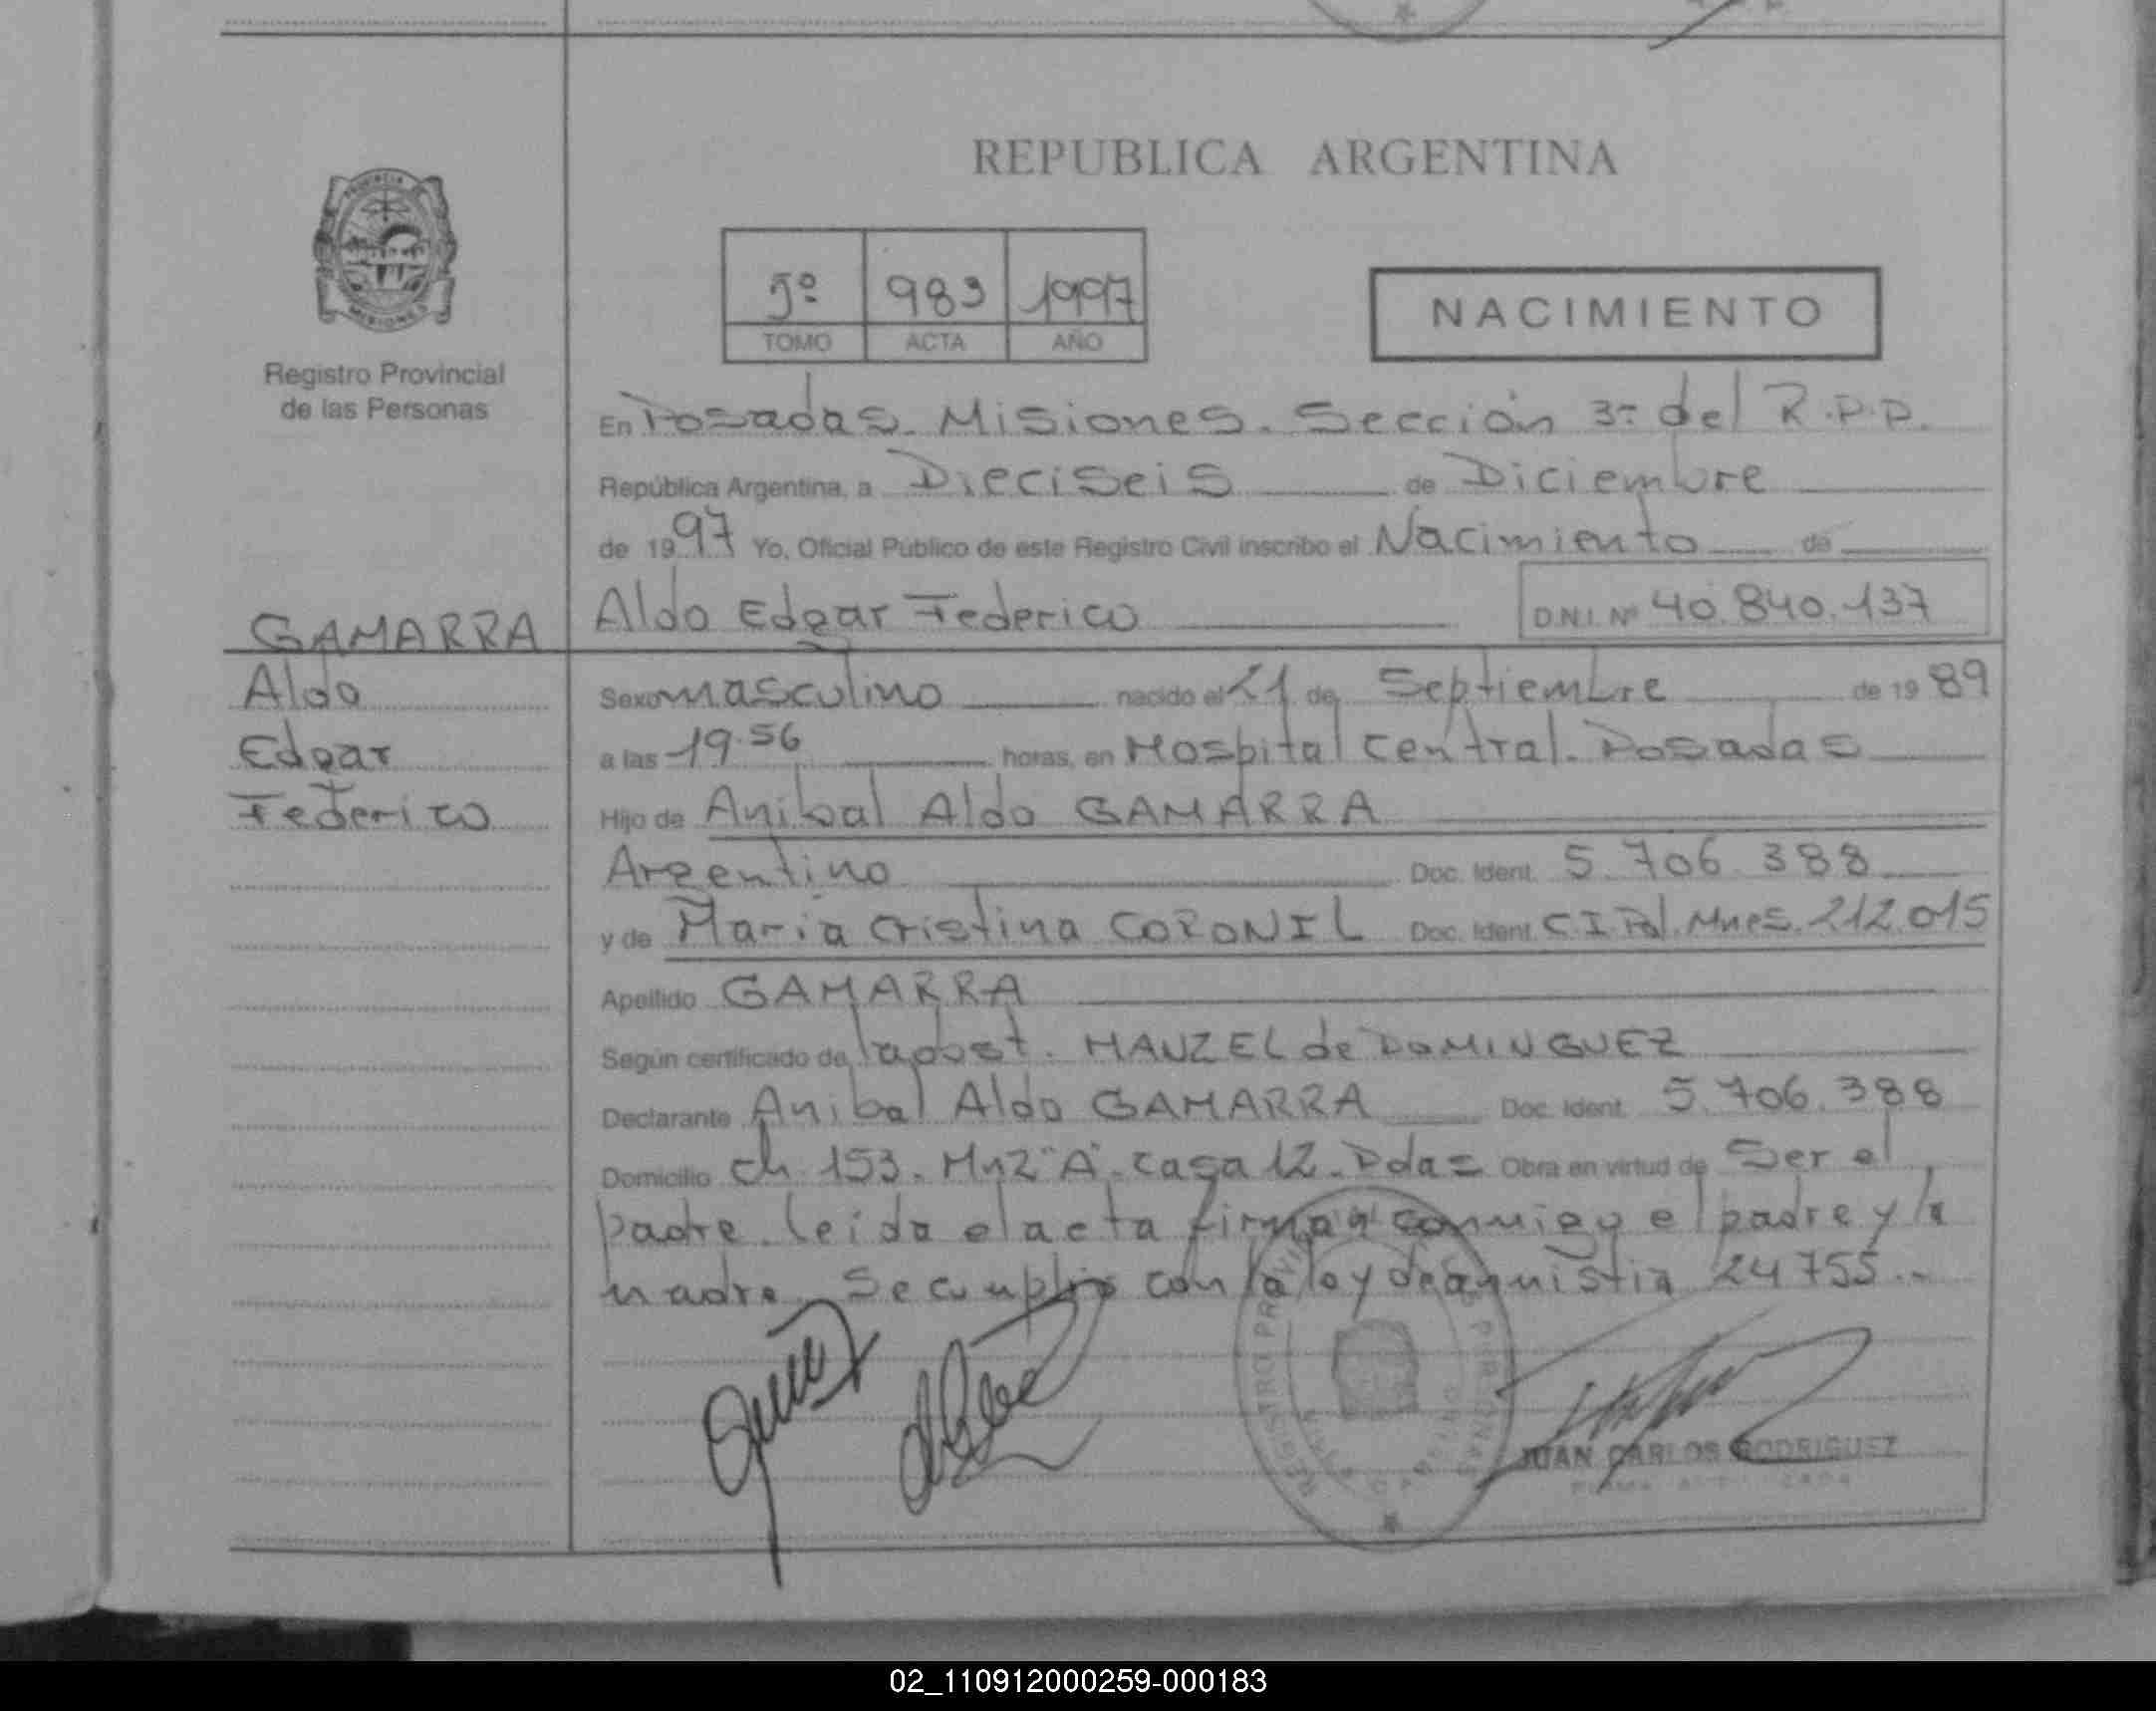 REPUBLICA ARGENTINA
PROVINCIA DE MISIONES
Registro Provincial
de las Personas
5º 983 1997
TOMO ACTA AÑO
NACIMIENTO
En Posadas. Misiones. Sección 3ª del R.P.P.
República Argentina, a Dieciseis de Diciembre
de 1997 Yo, Oficial Público de este Registro Civil inscribo el Nacimiento de
GAMARRA
Aldo Edgar Federico D.N.I. Nº 40.840.137
Aldo
Edgar
Federico
Sexo masculino nacido el 21 de Septiembre de 1989
a las 19.56 horas, en Hospital Central. Posadas
Hijo de Anibal Aldo GAMARRA
Argentino Doc. Ident. 5.706.388
y de Maria Cristina CORONIL Doc. Ident. C.I. Pol. Mnes. 212.015
Apellido GAMARRA
Según certificado de la obst. HANZEL de DOMINGUEZ
Declarante Anibal Aldo GAMARRA Doc. Ident. 5.706.388
Domicilio ch 153. Mnz "A". casa 12. Pdas Obra en virtud de Ser el
padre. Leida el acta firman conmigo el padre y la
madre. Se cumplio con la ley de amnistia 24755.-
REGISTRO PROVINCIAL DE LAS PERSONAS
JUAN CARLOS RODRIGUEZ
02_110912000259-000183